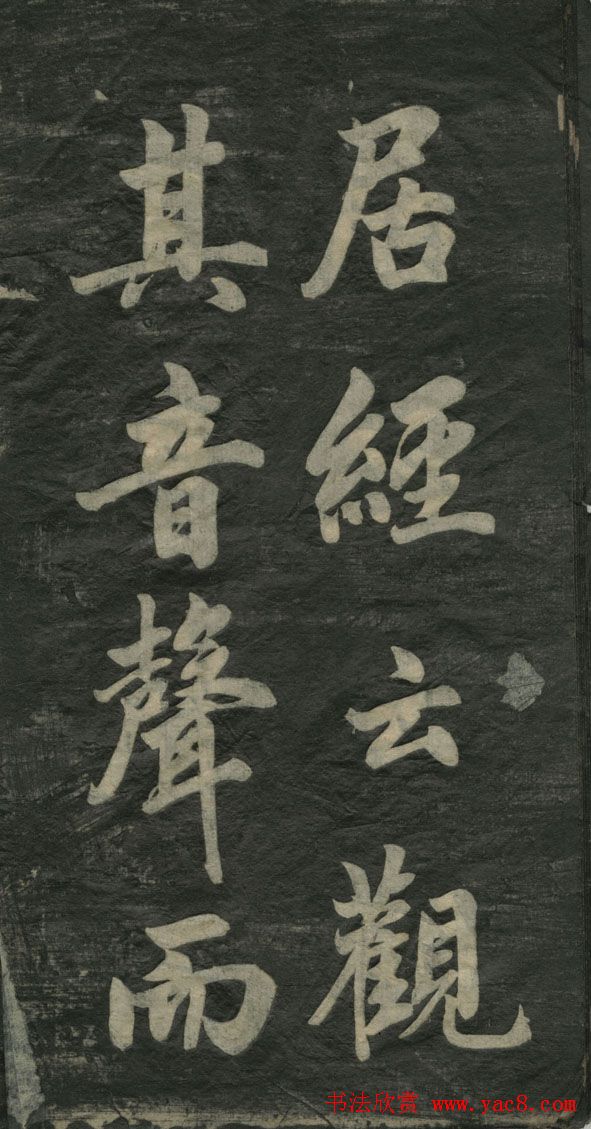 居經云觀
其音聲而
书法欣赏 www.yac8.com